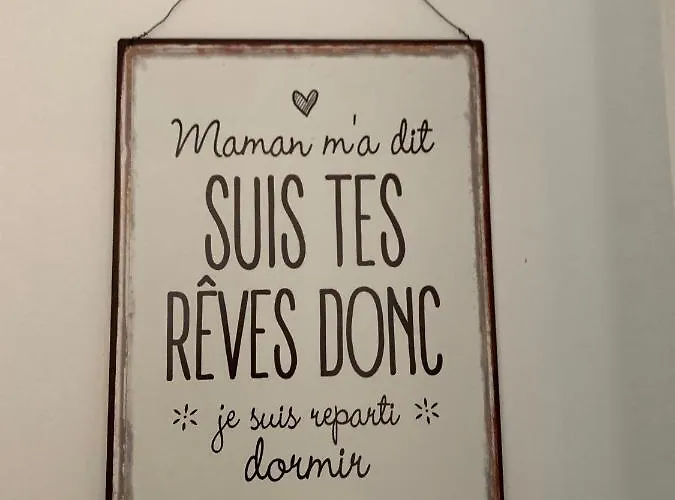 Maman m'a dit
SUIS TES
RÊVES DONC
je suis reparti
dormir